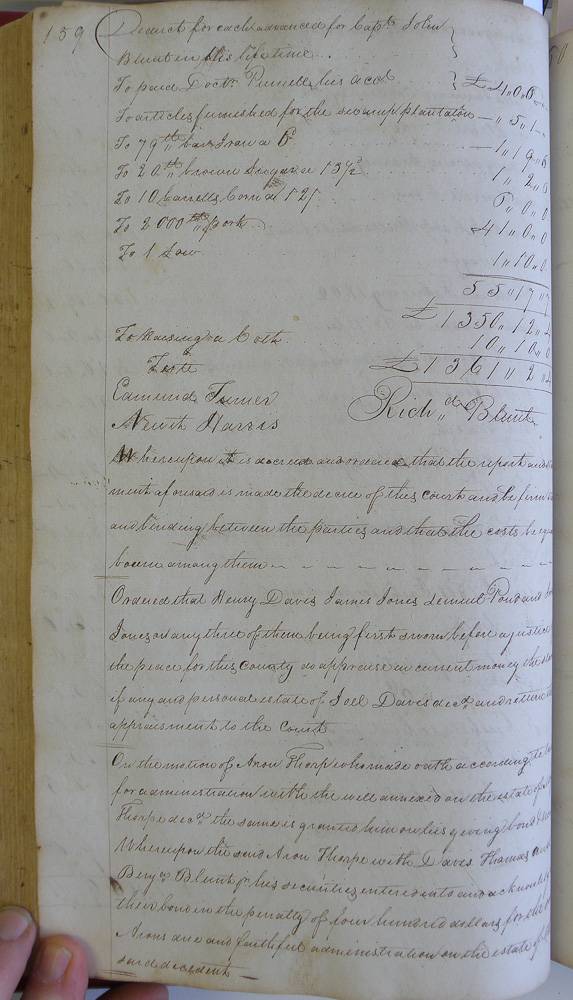 159
Deduct for cash advanced for Capt. John
Blunt in his life time
To paid Doctr. Purnell his acct £ 4,, 0,, 6
To articles furnished for the swamp plantation — ,, 5,, 1
To 79 lb bar Iron a 6d — 1,, 19,, 6
To 20 lb brown Sugar a 13½ 1,, 2,, 6
To 10 barrells Corn a 12/
To 2000 lb pork 41,, 0,, 0
To 1 Sow 1,, 10,, 0
55,, 17,, 7
£ 1350,, 12,,
To Raising a Colt 10,, 10,, 0
£ 1361,, 2,,
Teste
Edmund Turner
Newit Harris
Richd. Blunt
Whereupon it is decreed and ordered that the report and
ment aforesaid is made the decree of this court and be firm
and binding between the parties and that the costs be
borne among them
Ordered that Henry Davis James Jones Lemuel Pond and
Jones or any three of them being first sworn before a justice
the peace for this County do appraise in current money the
if any and personal estate of Joel Davis decd. and return
appraisment to the Court
On the motion of Aron Thorp who made oath according to
for administration with the will annexed on the estate of
Thorpe decd. the same is granted him on his giving bond &
Whereupon the said Aron Thorpe with Davis Thomas and
Benjn. Blunt jr his securities entered into and acknowledged
their bond in the penalty of four hundred dollars for the
Arons due and faithful administration on the estate of
said decedent